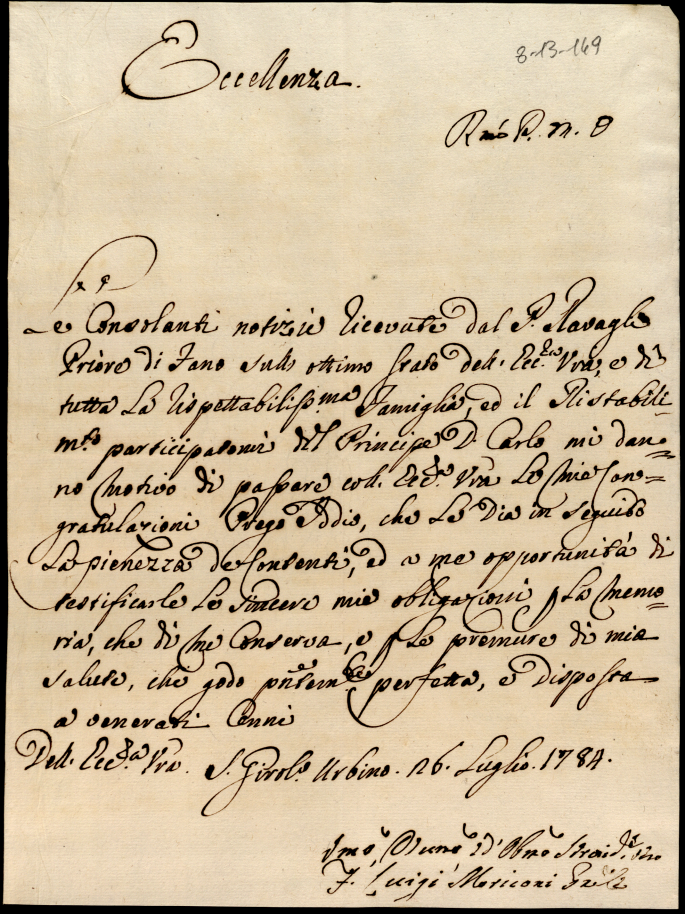 8-13-169
Eccellenza.
Rmo P. M. D
Le Consolanti notizie ricevute dal P. Ravagli
Priore di Fano sullo ottimo stato dell. Ecc.za Vra, e di
tutta la rispettabilissma Famiglia, ed il Ristabili-
mto participatomi del Principe D. Carlo mi dan=
no motivo di passare coll. Ecc.za Vra le mie Con=
gratulazioni Prego Iddio, che Le Dia in seguito
La pienezza de Contenti, ed a me opportunità di
testificarle le sincere mie obbligazioni p La memo=
ria, che di me Conserva, e p Le premure di mia
salute, che godo pñtemte perfetta, e Disposta
a venerati Cenni
Dell. Ecc.za Vra. S. Girolo Urbino. 26. Luglio. 1784.
Umo, Devmo ed Obmo
F. Luigi Moriconi Gnle